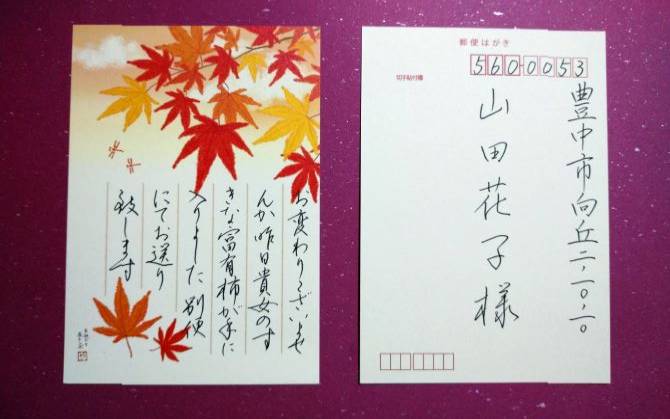 お変わりございませ
んか 昨日貴女のす
きな富有柿が手に
入りました 別便
にてお送り
致します
郵便はがき
560-0053
切手貼付欄
豊中市向丘二,一〇,一〇
山田花子様